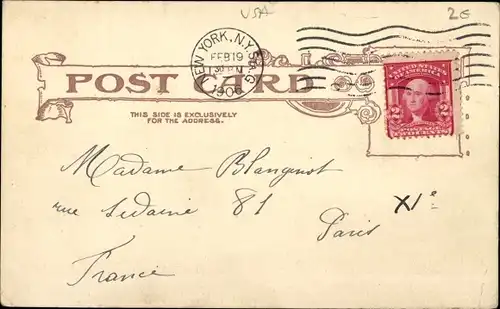 USA 2€
NEW YORK, N.Y.
FEB 19
1906
UNITED STATES
OF AMERICA
2 2
POSTAGE
TWO CENTS
POST CARD
THIS SIDE IS EXCLUSIVELY
FOR THE ADDRESS.
Madame Blanguinot
rue Sedaine 81 XIe
Paris
France